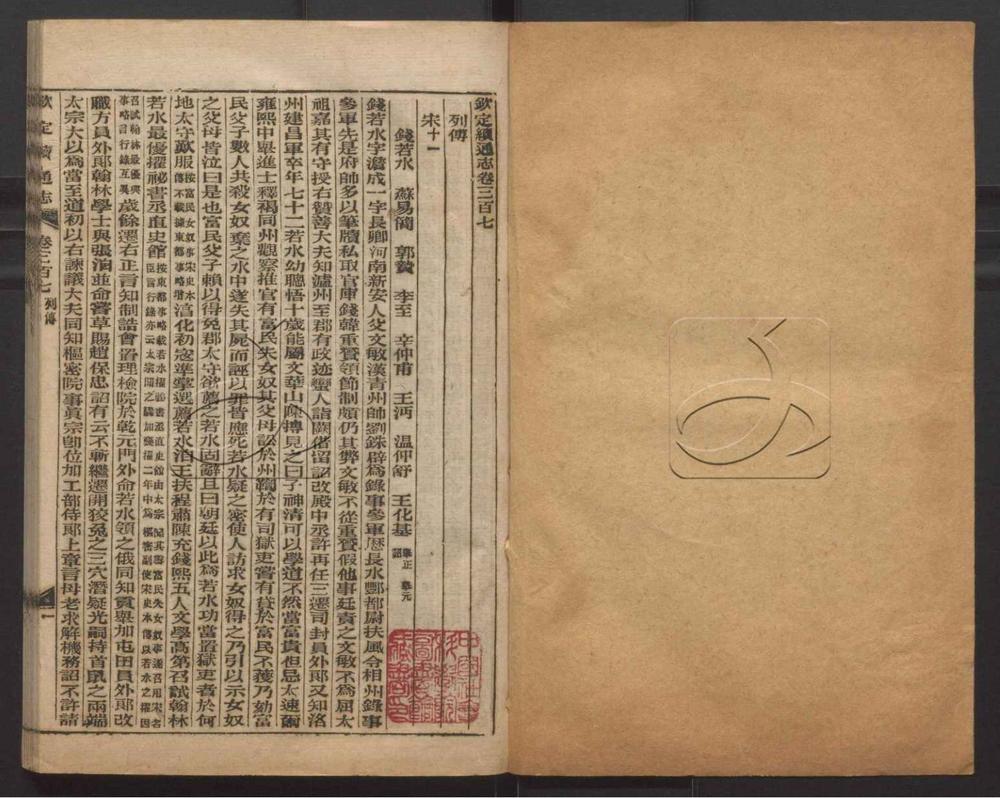 欽定續通志卷三百七
列傳
宋十一
錢若水 蘇易簡 郭贄 李至 辛仲甫 王沔 溫仲舒 王化基 舉正 舉元 詔
錢若水字澹成一字長卿河南新安人父文敏漢青州帥劉銖辟爲錄事參軍歷長水酆都尉扶風令相州錄事
參軍先是府帥多以筆牘私取官庫錢韓重贇領節制頗仍其弊文敏不從重贇假他事廷責之文敏不爲屈太
祖嘉其有守授右贊善大夫知瀘州至郡有政迹蠻人詣闕借留詔改殿中丞許再任三遷司封員外郎又知洛
州建昌軍卒年七十二若水幼聰悟十歲能屬文華山陳摶見之曰子神清可以學道不然當富貴但忌太速爾
雍熙中舉進士釋褐同州觀察推官有富民失女奴其父母訟於州鞫於有司獄吏嘗有貸於富民不獲乃劾富
民父子數人共殺女奴棄之水中遂失其屍而誣以罪皆應死若水疑之密使人訪求女奴得之乃引以示女奴
之父母皆泣曰是也富民父子賴以得免郡太守欲薦之若水固辭且曰朝廷以此爲若水功當置獄吏者於何
地太守歎服按富民女奴事宋史本傳不載據東都事略增淳化初寇準掌選薦若水洎王扶程肅陳充錢熙五人文學高第召試翰林
若水最優擢祕書丞直史館按東都事略載若水擢祕書丞直史館由太宗聞其辯富民失女奴事遽召用宋名臣言行錄亦云太宗聞之驟加進擢二年中爲樞密副使宋史本傳以若水之擢因
召試翰林最優與事略言行錄互異歲餘遷右正言知制誥會置理檢院於乾元門外命若水領之俄同知貢舉加屯田員外郎改
職方員外郎翰林學士與張洎並命嘗草賜趙保忠詔有云不斬繼遷開狡兔之三穴潛疑光嗣持首鼠之兩端
太宗大以爲當至道初以右諫議大夫同知樞密院事眞宗卽位加工部侍郎上章言母老求解機務詔不許請
欽定續通志 卷三百七 列傳 一